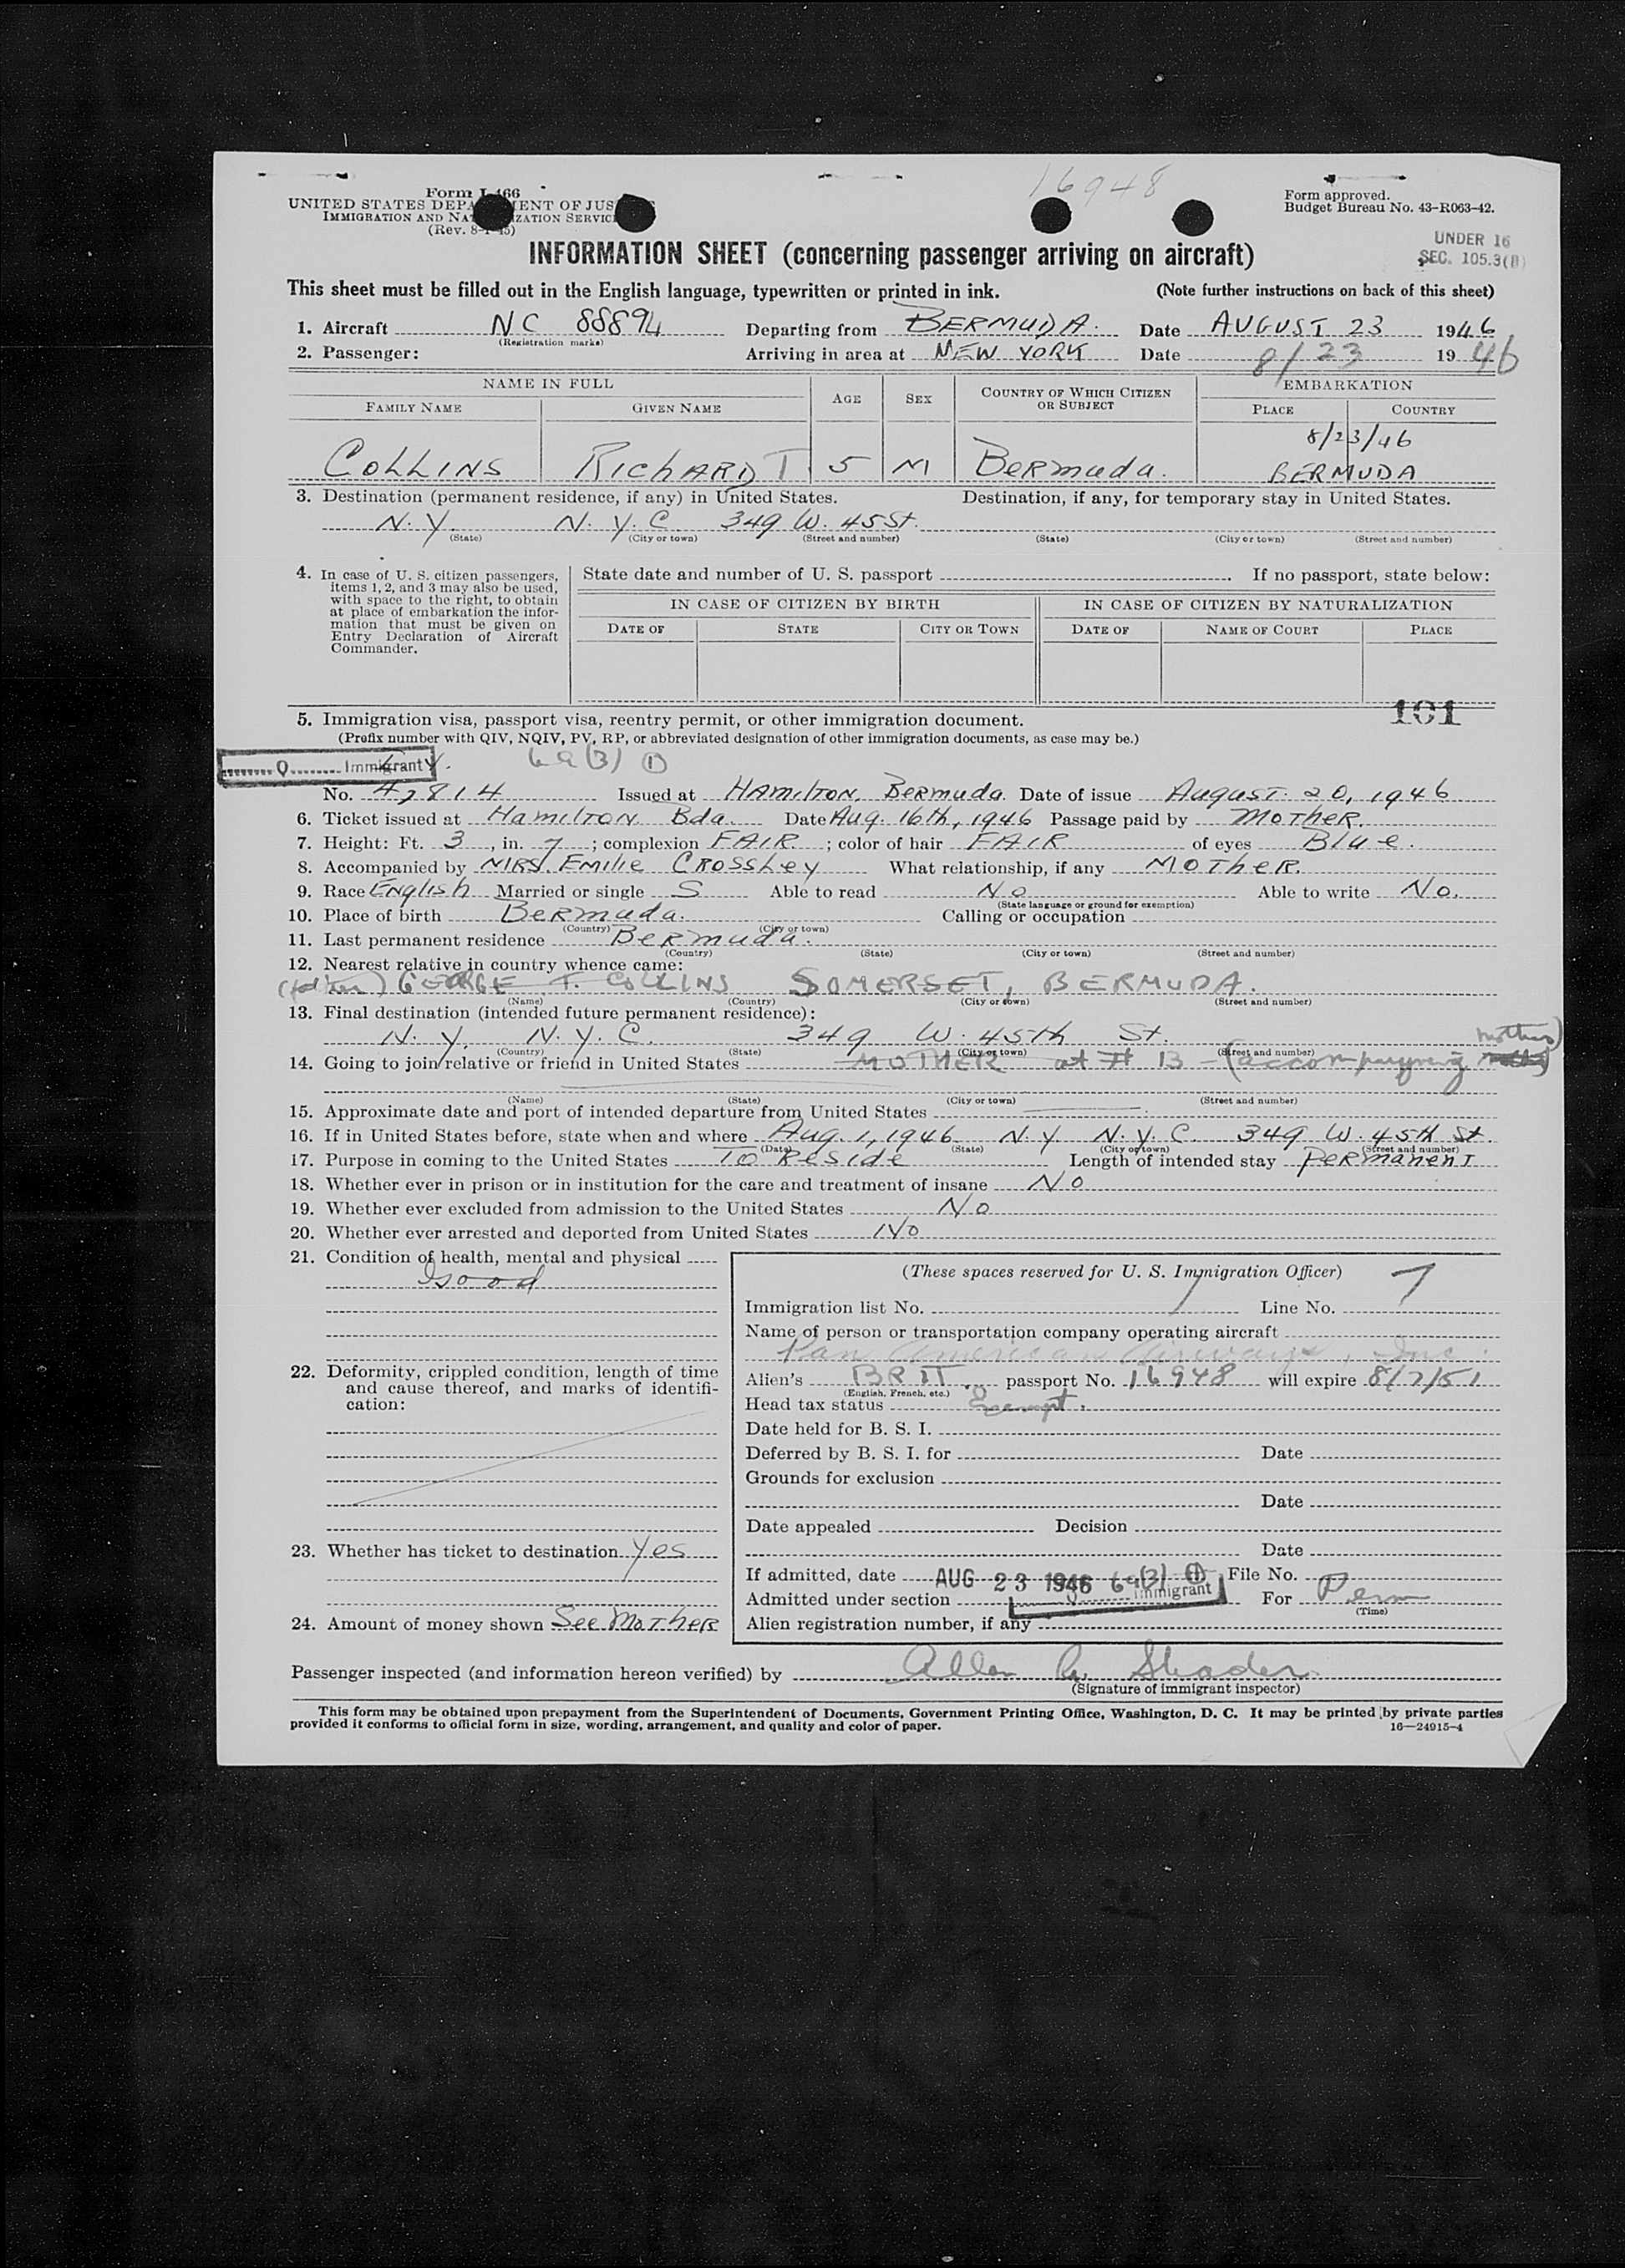 16948
Form I-466
UNITED STATES DEPA ENT OF JUS
IMMIGRATION AND NA ZATION SERVIC
(Rev. 8-1-45)
Form approved.
Budget Bureau No. 43-R063-42.
UNDER 16
SEC. 105.3(B)
INFORMATION SHEET (concerning passenger arriving on aircraft)
This sheet must be filled out in the English language, typewritten or printed in ink. (Note further instructions on back of this sheet)
1. Aircraft NC 88894 Departing from BERMUDA. Date AUGUST 23 1946
(Registration marks)
2. Passenger: Arriving in area at NEW YORK Date 8/23 1946
NAME IN FULL AGE SEX COUNTRY OF WHICH CITIZEN OR SUBJECT EMBARKATION
FAMILY NAME GIVEN NAME PLACE COUNTRY
8/23/46
COLLINS RICHARD T 5 M Bermuda. BERMUDA
3. Destination (permanent residence, if any) in United States. Destination, if any, for temporary stay in United States.
N. Y. N. Y. C. 349 W. 45 St.
(State) (City or town) (Street and number) (State) (City or town) (Street and number)
4. In case of U. S. citizen passengers,
items 1, 2, and 3 may also be used,
with space to the right, to obtain
at place of embarkation the infor-
mation that must be given on
Entry Declaration of Aircraft
Commander.
State date and number of U. S. passport If no passport, state below:
IN CASE OF CITIZEN BY BIRTH IN CASE OF CITIZEN BY NATURALIZATION
DATE OF STATE CITY OR TOWN DATE OF NAME OF COURT PLACE
101
5. Immigration visa, passport visa, reentry permit, or other immigration document.
(Prefix number with QIV, NQIV, PV, RP, or abbreviated designation of other immigration documents, as case may be.)
Q Immigrant 6a(3) 1
No. 47814 Issued at HAMILTON, Bermuda Date of issue August. 20, 1946
6. Ticket issued at Hamilton Bda. Date Aug. 16th, 1946 Passage paid by MOTHER.
7. Height: Ft. 3, in. 7; complexion FAIR; color of hair FAIR of eyes Blue.
8. Accompanied by MRS. Emilie CROSSLEY What relationship, if any MOTHER.
9. Race English Married or single S Able to read No Able to write No.
(State language or ground for exemption)
10. Place of birth Bermuda. Calling or occupation
(Country) (City or town)
11. Last permanent residence Bermuda.
(Country) (State) (City or town) (Street and number)
12. Nearest relative in country whence came:
GEORGE T. COLLINS SOMERSET, BERMUDA.
(Name) (Country) (City or town) (Street and number)
13. Final destination (intended future permanent residence):
N. Y. N. Y. C. 349 W. 45th St.
(Country) (State) (City or town) (Street and number)
14. Going to join relative or friend in United States MOTHER at # 13 - (accompanying mother)
(Name) (State) (City or town) (Street and number)
15. Approximate date and port of intended departure from United States
16. If in United States before, state when and where Aug. 1, 1946 N. Y. N. Y. C. 349 W. 45th St.
(Date) (State) (City or town) (Street and number)
17. Purpose in coming to the United States To Reside Length of intended stay Permanent
18. Whether ever in prison or in institution for the care and treatment of insane No
19. Whether ever excluded from admission to the United States No
20. Whether ever arrested and deported from United States No
21. Condition of health, mental and physical
Good
22. Deformity, crippled condition, length of time
and cause thereof, and marks of identifi-
cation:
23. Whether has ticket to destination Yes
24. Amount of money shown See Mother
(These spaces reserved for U. S. Immigration Officer)
Immigration list No. Line No. 7
Name of person or transportation company operating aircraft
Pan American Airways, Inc.
Alien's BRIT. passport No. 16948 will expire 8/7/51
(English, French, etc.)
Head tax status Exempt.
Date held for B. S. I.
Deferred by B. S. I. for Date
Grounds for exclusion
Date
Date appealed Decision
Date
If admitted, date AUG 23 1946 6a(3) 1 File No.
Admitted under section Q Immigrant For Perm
(Time)
Alien registration number, if any
Passenger inspected (and information hereon verified) by Allen
(Signature of immigrant inspector)
This form may be obtained upon prepayment from the Superintendent of Documents, Government Printing Office, Washington, D. C. It may be printed by private parties
provided it conforms to official form in size, wording, arrangement, and quality and color of paper. 16—24915-4